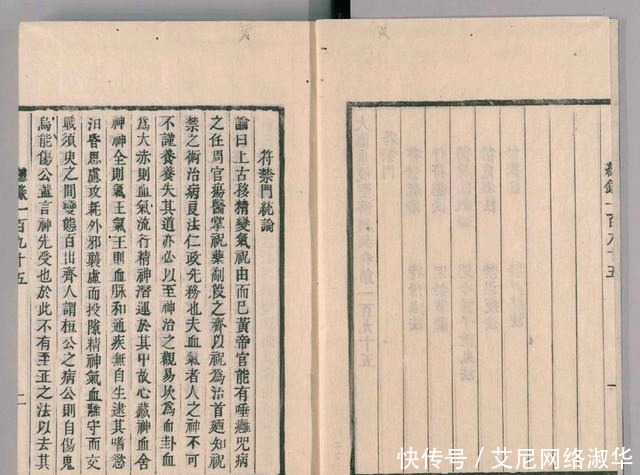 總錄一百九十五
一
符禁門統論
論曰上古移精變氣祝由而已黃帝官能有唾癰咒病
之任周官瘍醫掌祝藥劀殺之齊以祝為治首廼知祝
禁之術治病夏法仁政先務也夫血氣者人之神不可
不謹養養失其道亦必以至神治之觀易坎為血卦血
為大赤則血氣流行精神潛運於其中故心藏神血舍
神神全則氣王氣王則血脈和通疾無自生逮其嗜慾
汨昏思慮攻耗外邪襲慮而投隙精神氣血離守而交
戰須臾之間變態百出齊人謂桓公之病公則自傷鬼
烏能傷公蓋言神先受也於此不有至正之法以去其
總錄一百九十五
二
快传号/艾尼网络淑华